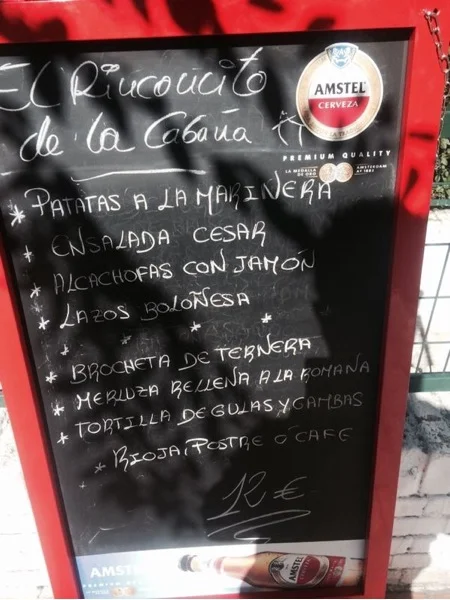 El Rinconcito
de la Cabaña
AMSTEL
CERVEZA
PREMIUM QUALITY
LA MEDALLA
DE ORO
AMSTERDAM
* PATATAS A LA MARINERA
* ENSALADA CESAR
* ALCACHOFAS CON JAMÓN
* LAZOS BOLOÑESA
* * * *
* BROCHETA DE TERNERA
* MERLUZA RELLENA A LA ROMANA
* TORTILLA DE GULAS Y GAMBAS
* RIOJA, POSTRE Ó CAFE
12 €
AMSTEL
AMSTEL